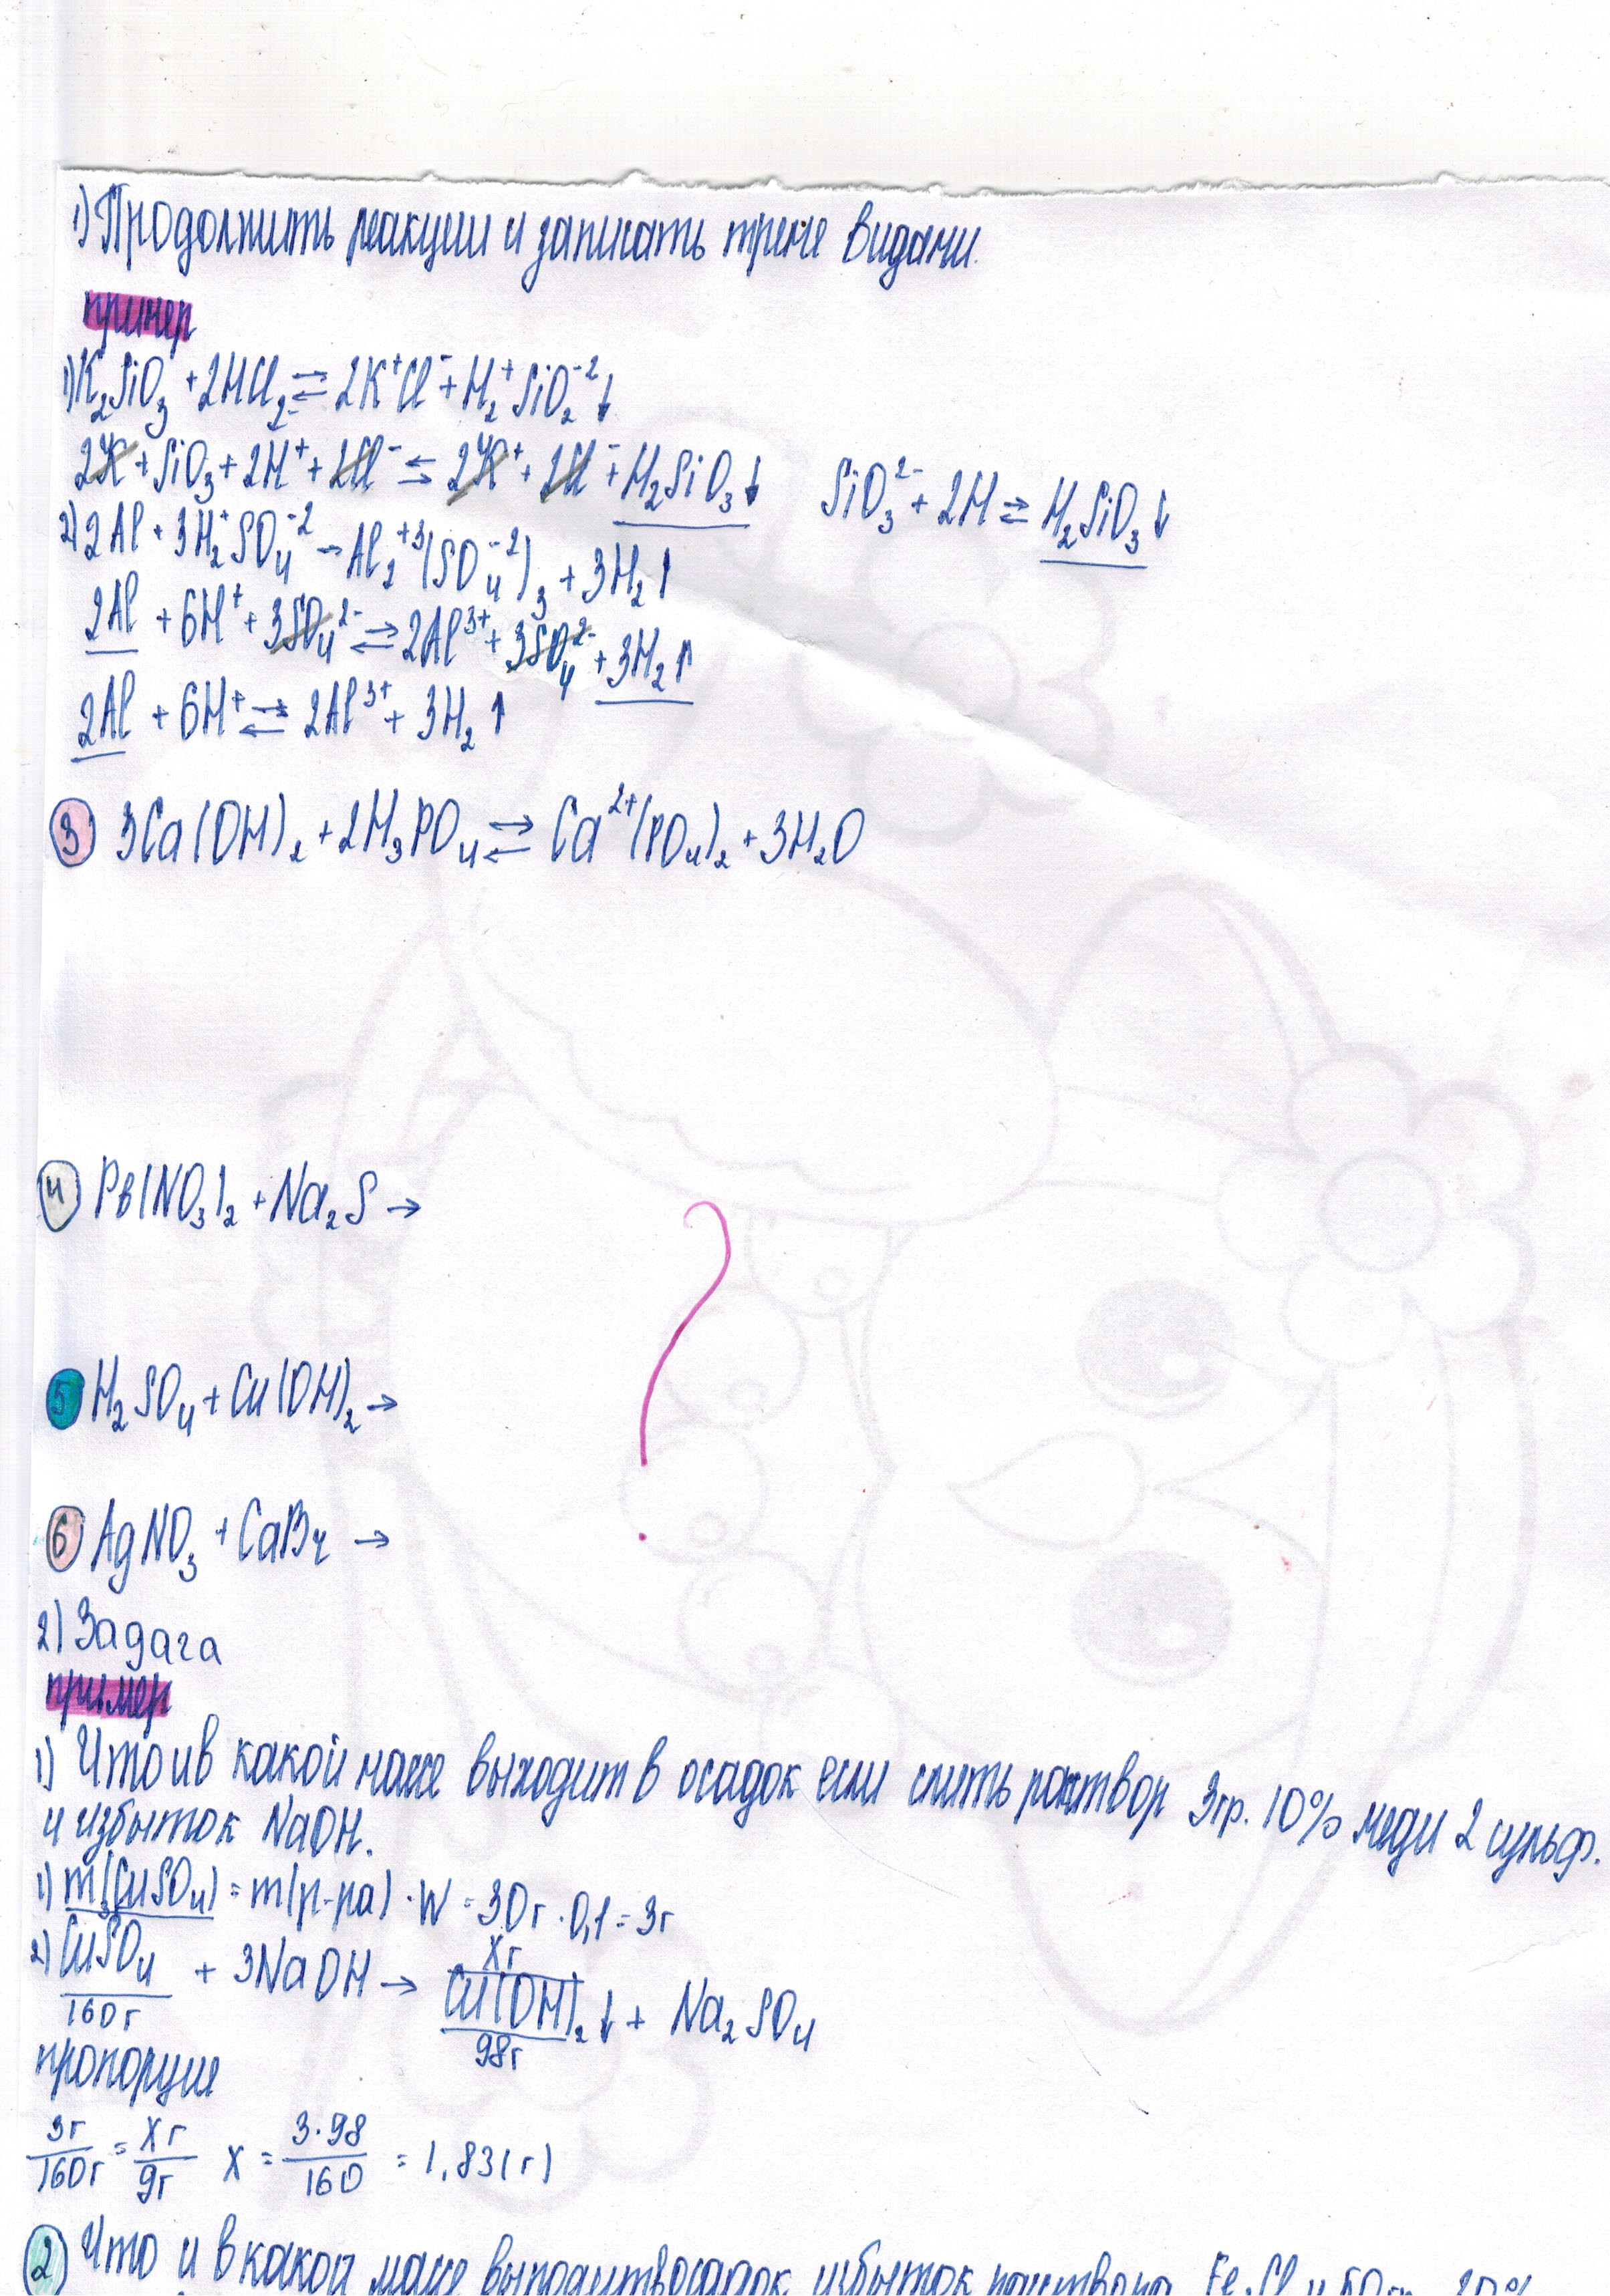 1) Продолжить реакции и записать тремя видами.
пример
1) K₂SiO₃ + 2HCl₂ ⇄ 2K⁺Cl⁻ + H₂⁺SiO₂⁻²↓
2K + SiO₃ + 2H⁺ + 2Cl⁻ ⇆ 2K⁺ + 2Cl⁻ + H₂SiO₃↓ SiO₃²⁻ + 2H ⇄ H₂SiO₃↓
2) 2Al + 3H₂⁺SO₄⁻² → Al₂⁺³(SO₄⁻²)₃ + 3H₂↑
2Al + 6H⁺ + 3SO₄²⁻ ⇄ 2Al³⁺ + 3SO₄²⁻ + 3H₂↑
2Al + 6H⁺ ⇄ 2Al³⁺ + 3H₂↑
3) 3Ca(OH)₂ + 2H₃PO₄ ⇄ Ca²⁺(PO₄)₂ + 3H₂O
4) Pb(NO₃)₂ + Na₂S →
?
5) H₂SO₄ + Cu(OH)₂ →
6) AgNO₃ + CaBr →
2) Задача
пример
1) Что и в какой массе выходит в осадок если слить раствор 3гр. 10% меди 2 сульф.
и избыток NaOH.
1) m(CuSO₄) = m(р-ра) · W = 30г · 0,1 = 3г
3г xг
2) CuSO₄ + 3NaOH → Cu(OH)₂↓ + Na₂SO₄
160г 98г
пропорция
3г/160г = xг/9г x = 3·98/160 = 1,83(г)
2) Что и в какой массе выходит в осадок избыток раствора